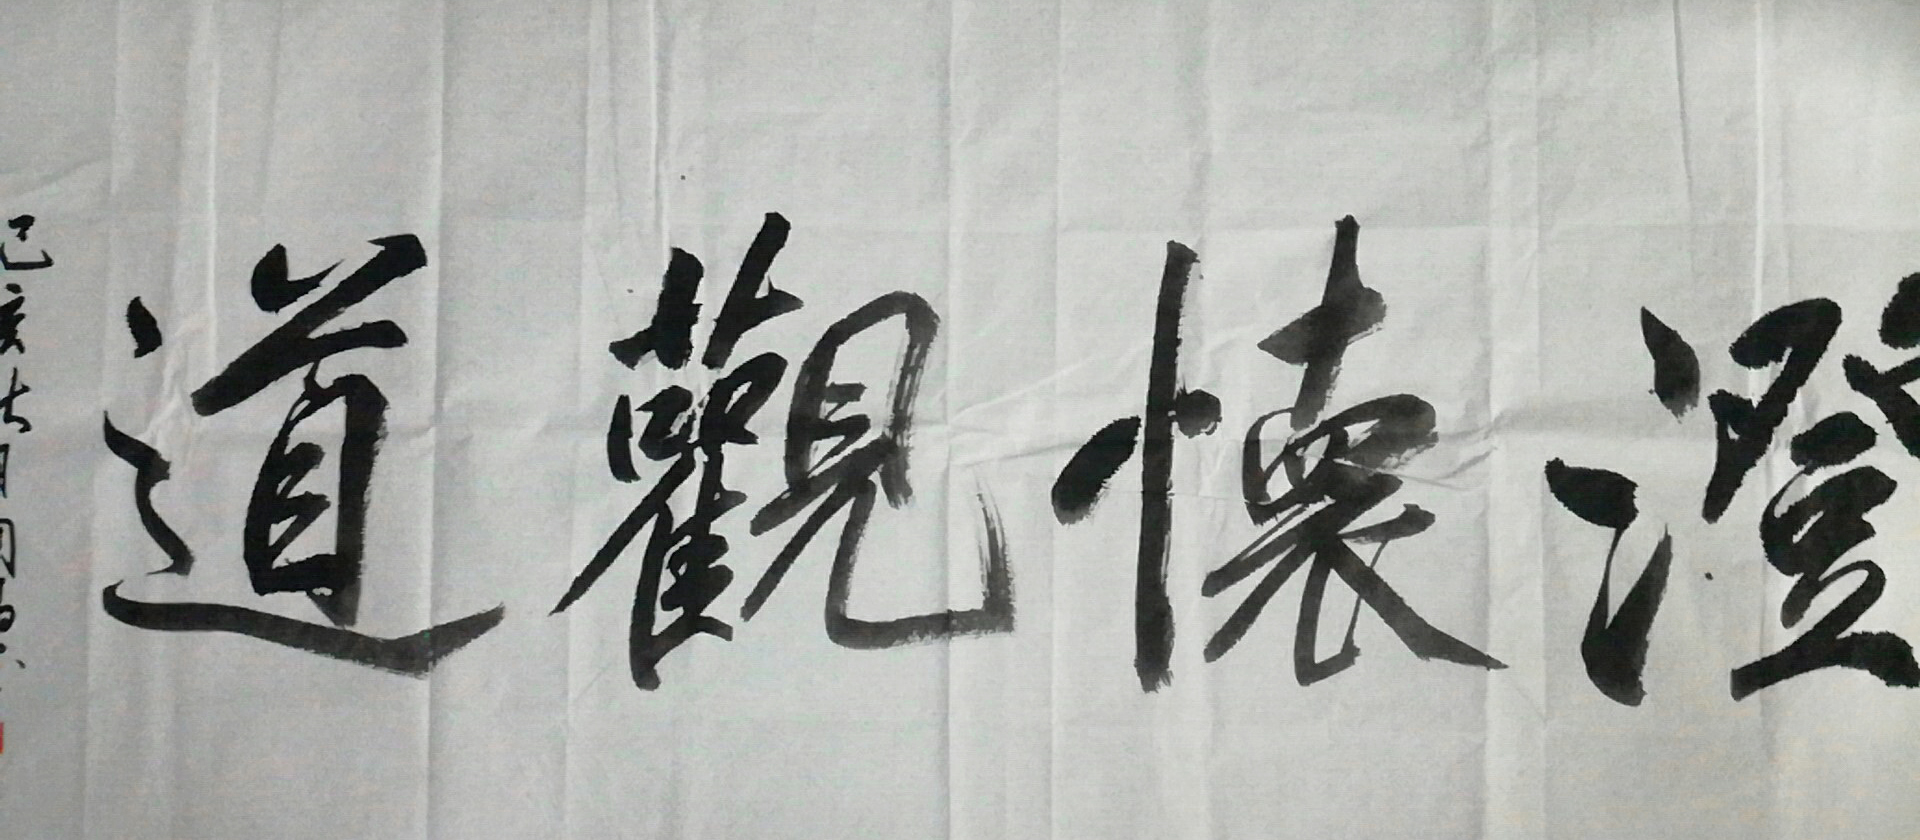 澄懷觀道
己亥七月周